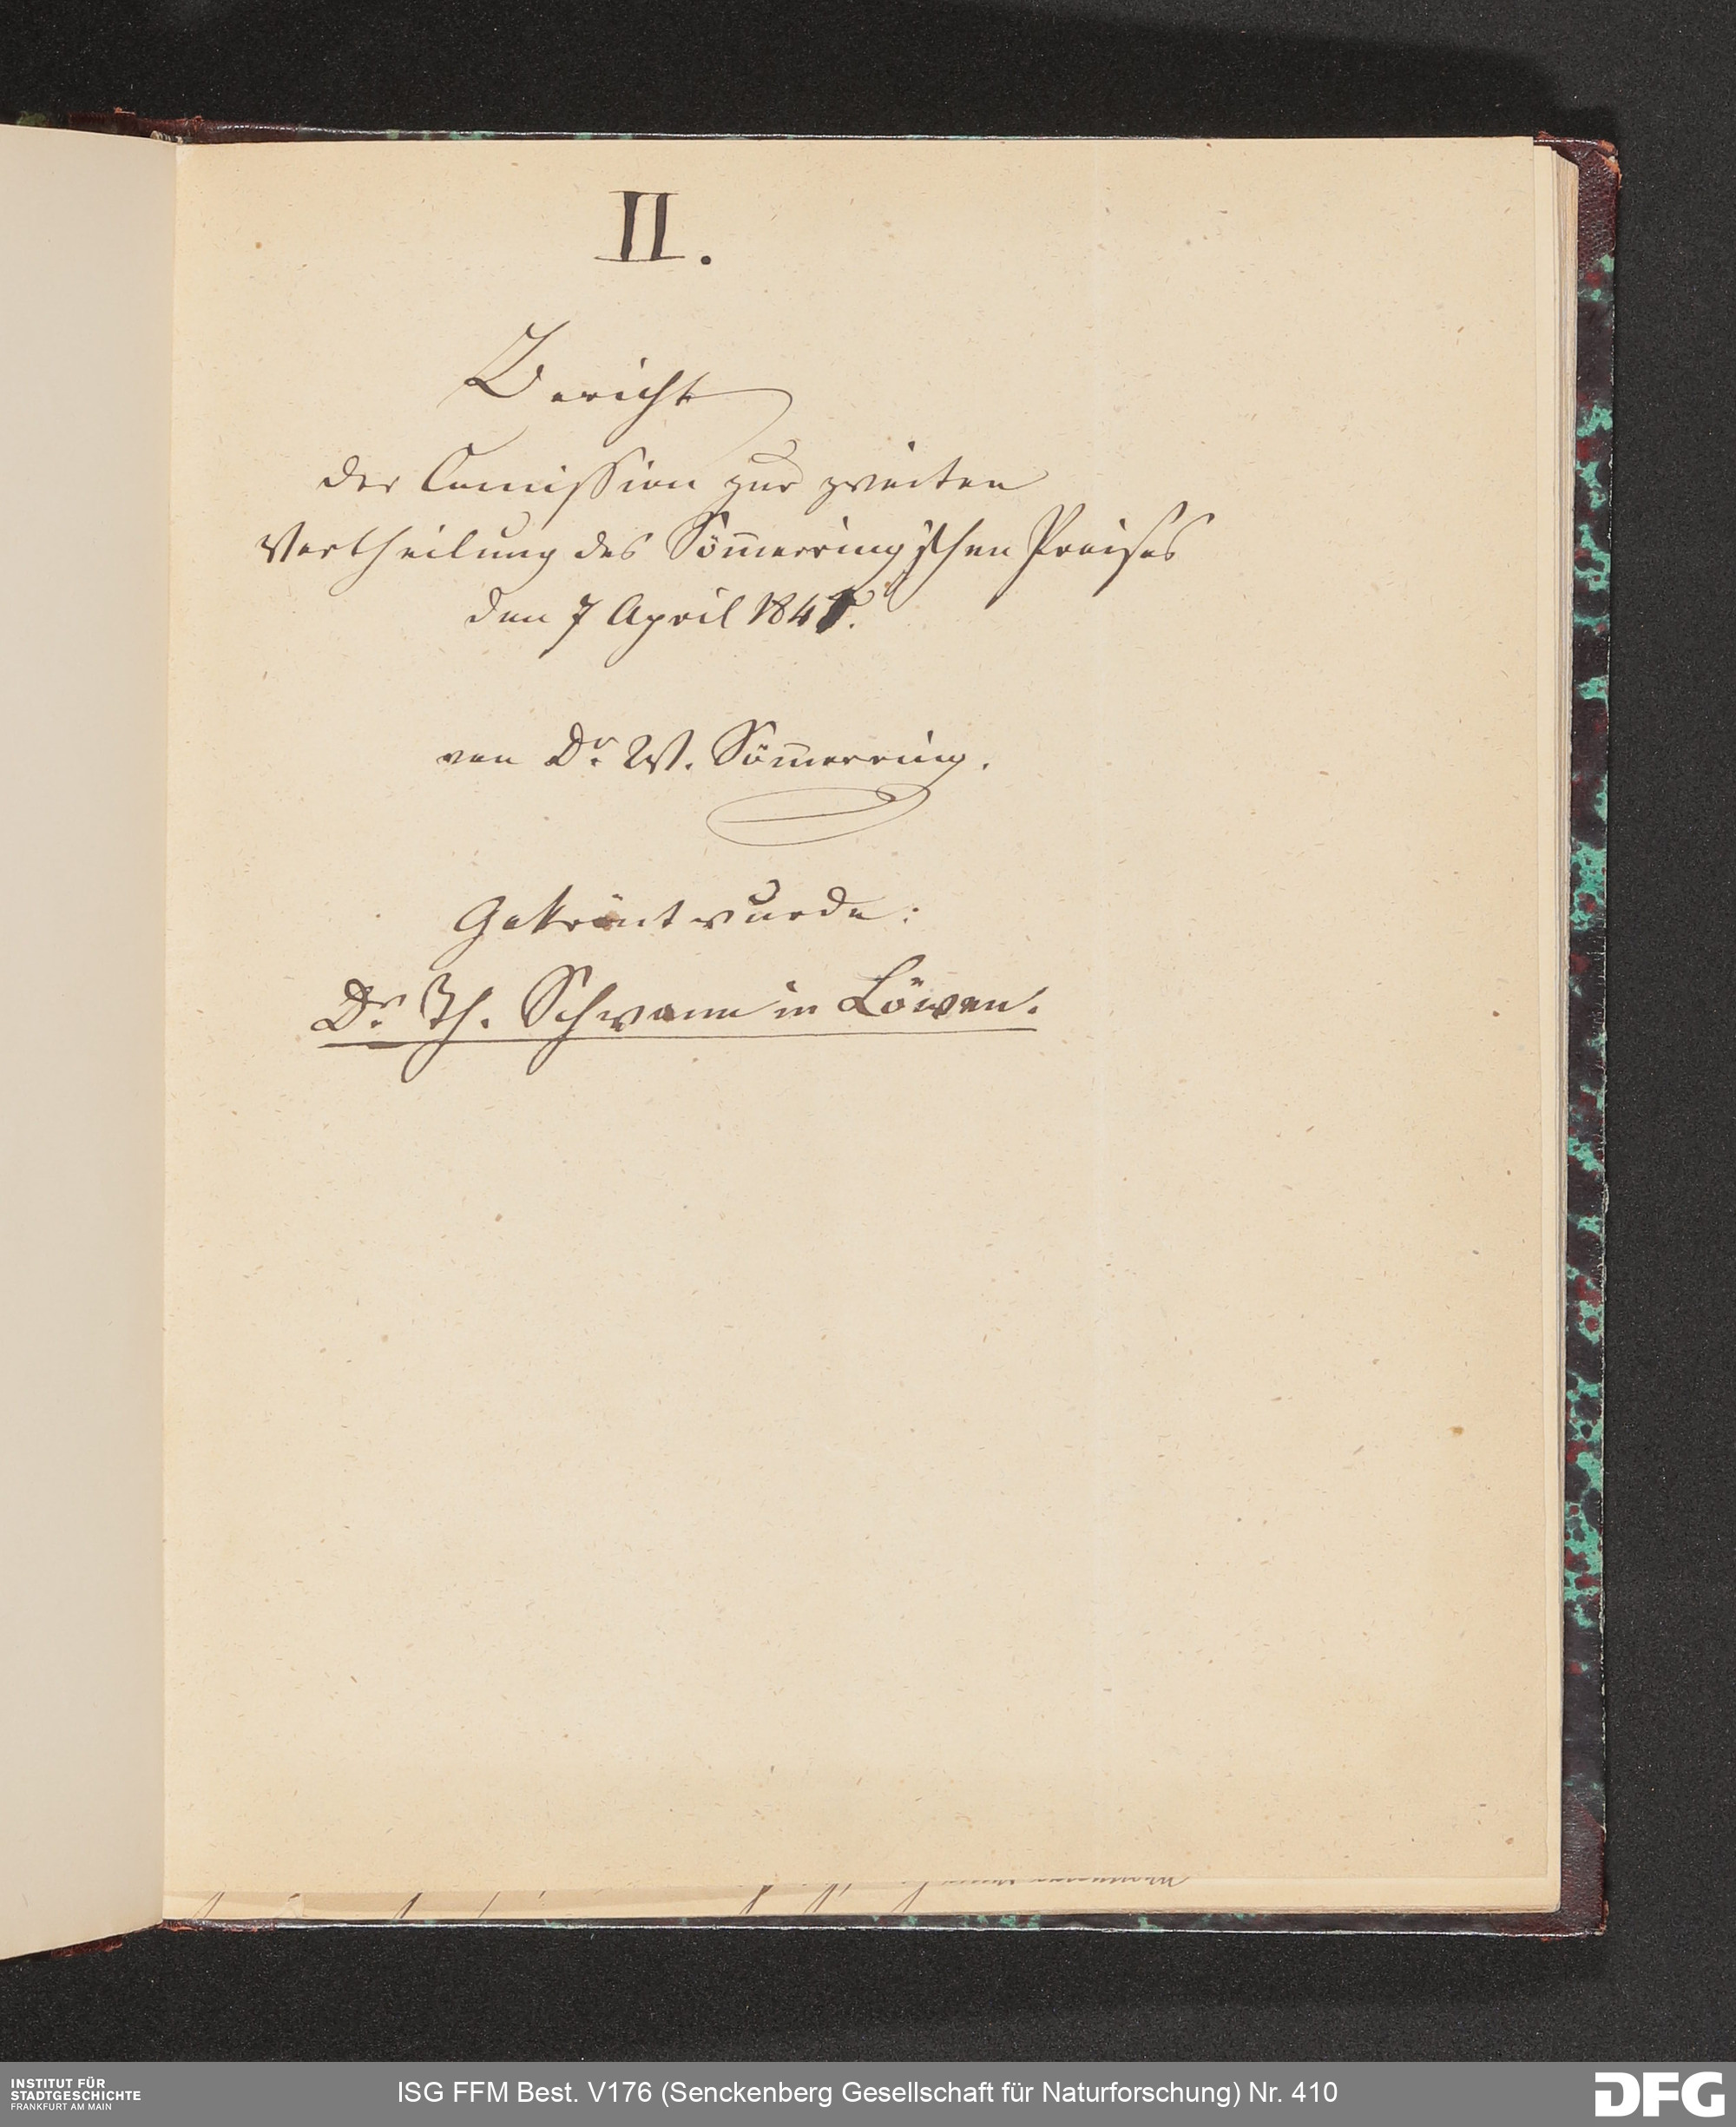 II.
Bericht
der Com̅ission zur zweiten
Vertheilung des Söm̅erring'schen Preises
den 7 April 1841.
von Dr. W. Söm̅erring.
Gekrönt wurde:
Dr. Th. Schwann in Löwen.
INSTITUT FÜR
STADTGESCHICHTE
FRANKFURT AM MAIN
ISG FFM Best. V176 (Senckenberg Gesellschaft für Naturforschung) Nr. 410
DFG